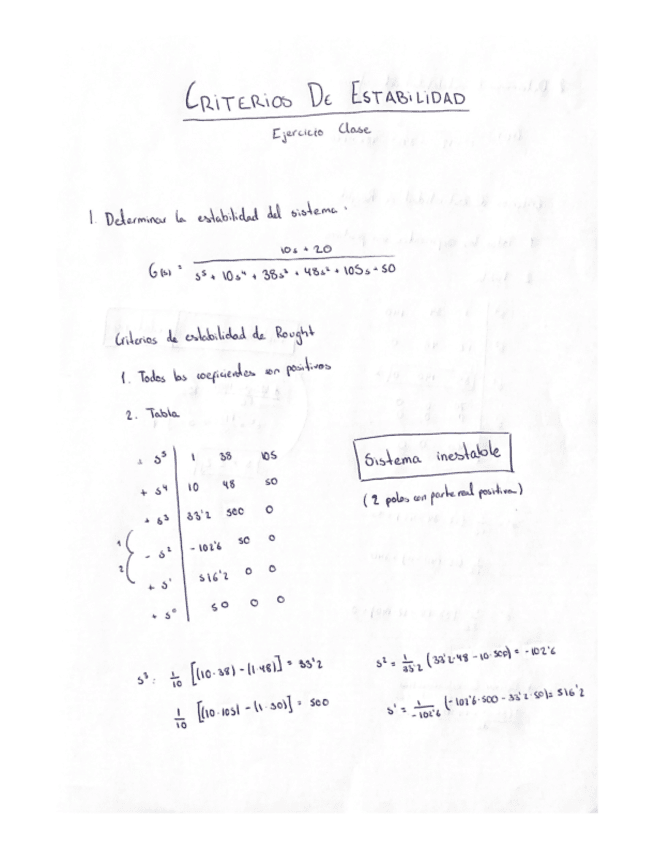 CRITERIOS DE ESTABILIDAD
Ejercicio Clase
1. Determinar la estabilidad del sistema.
G(s) = 10s + 20 / s⁵ + 10s⁴ + 38s³ + 48s² + 105s + 50
Criterios de estabilidad de Rought
1. Todos los coeficientes son positivos
2. Tabla
+ s⁵ | 1 38 105
+ s⁴ | 10 48 50
+ s³ | 33'2 500 0
1 2 { - s² | -102'6 50 0
+ s¹ | 516'2 0 0
+ s⁰ | 50 0 0
Sistema inestable
(2 polos con parte real positiva)
s³: 1/10 [(10·38) - (1·48)] = 33'2
1/10 [(10·105) - (1·50)] = 500
s² = 1/33'2 (33'2·48 - 10·500) = -102'6
s¹ = 1/-102'6 (-102'6·500 - 33'2·50) = 516'2